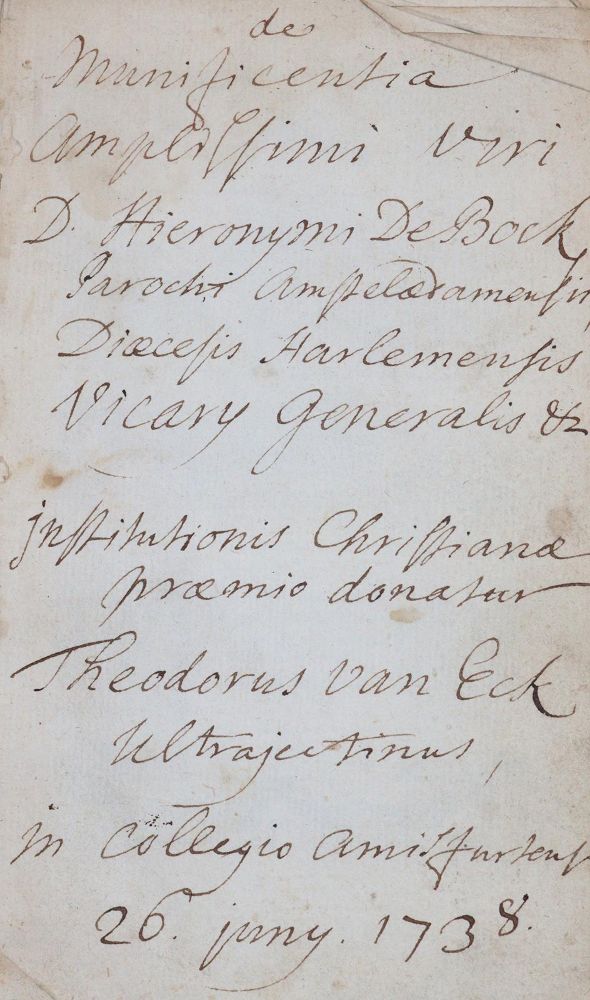 de
Munificentia
Ampliſſimi Viri
D. Hieronymi De Bock
Parochi Amſtelædamenſis
Diæceſis Harlemenſis
Vicary Generalis &c
jnſtitutionis Chriſtianæ
præmio donatur
Theodorus van Eck
Ultrajectinus,
in Collegio Amisfurtenſi
26. juny. 1738.